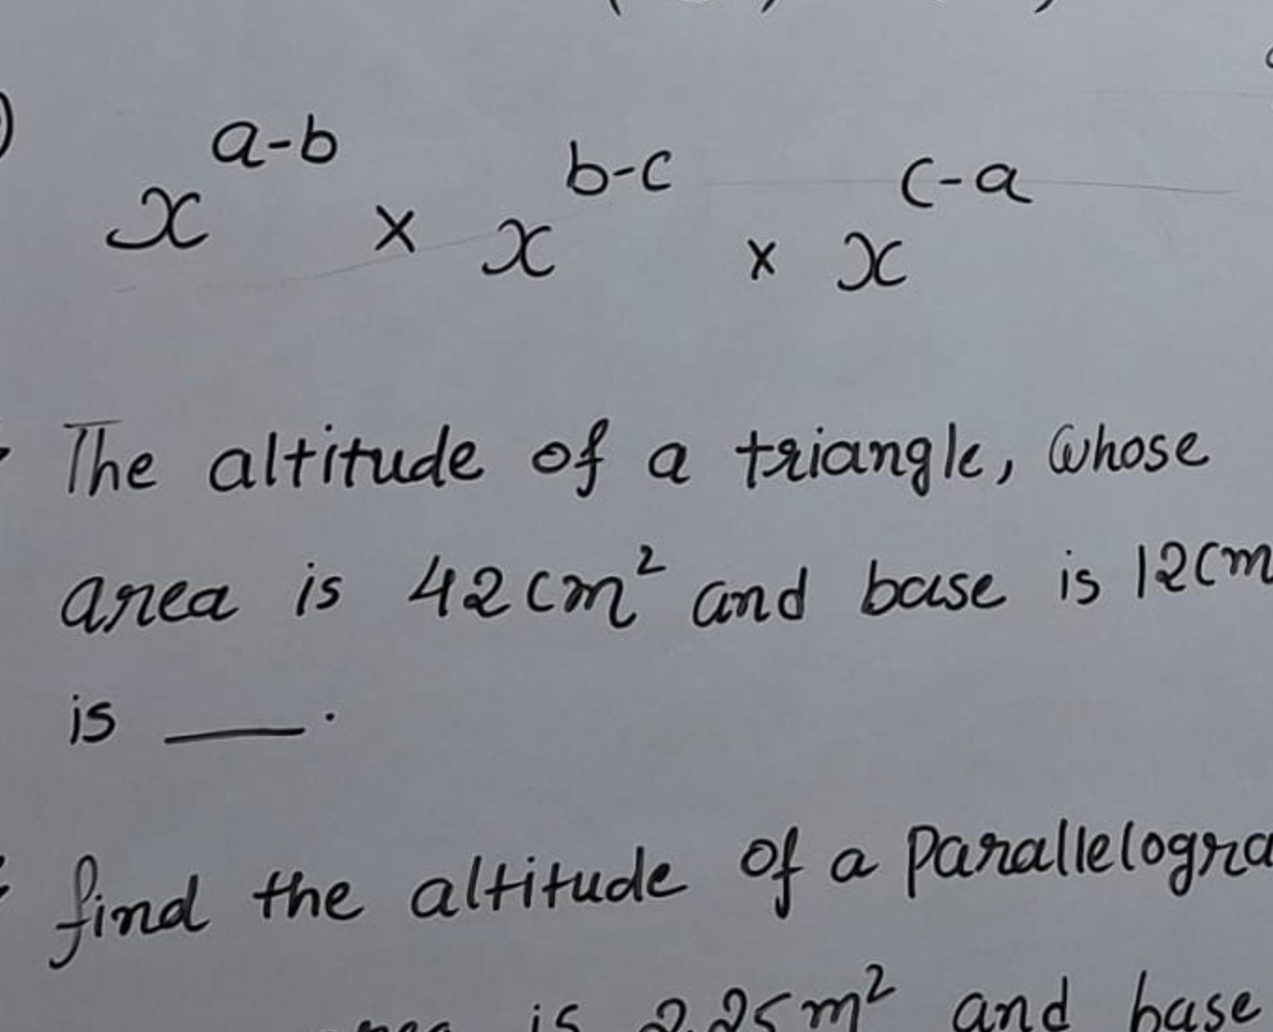 x^{a-b} × x^{b-c} × x^{c-a}
The altitude of a triangle, whose
area is 42cm² and base is 12cm
is ___.
find the altitude of a Parallelogra
is 2.25m² and base